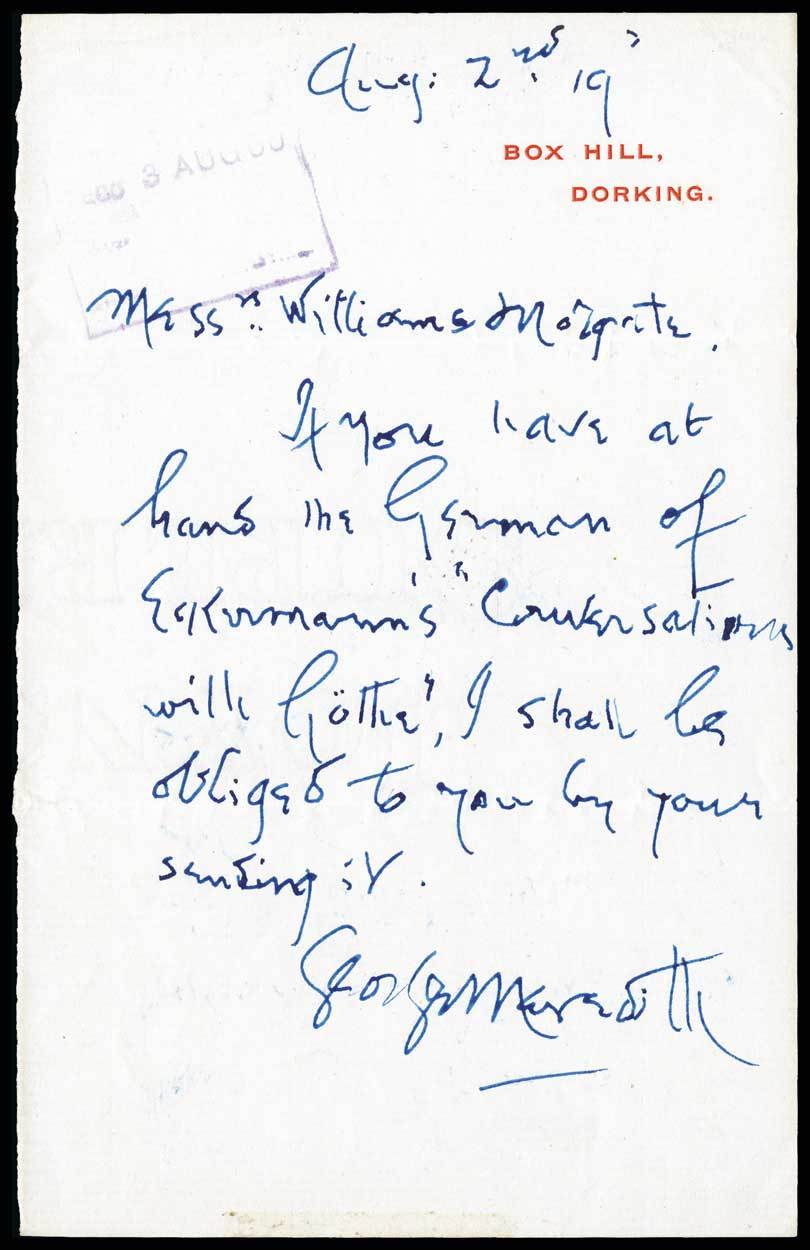 Aug: 2nd. 19
BOX HILL,
DORKING.
3 AUG
Messrs. Williams & Norgate.
If you have at
hand the German of
Eckermann's "Conversations
with Göthe", I shall be
obliged to you by your
sending it.
George Meredith